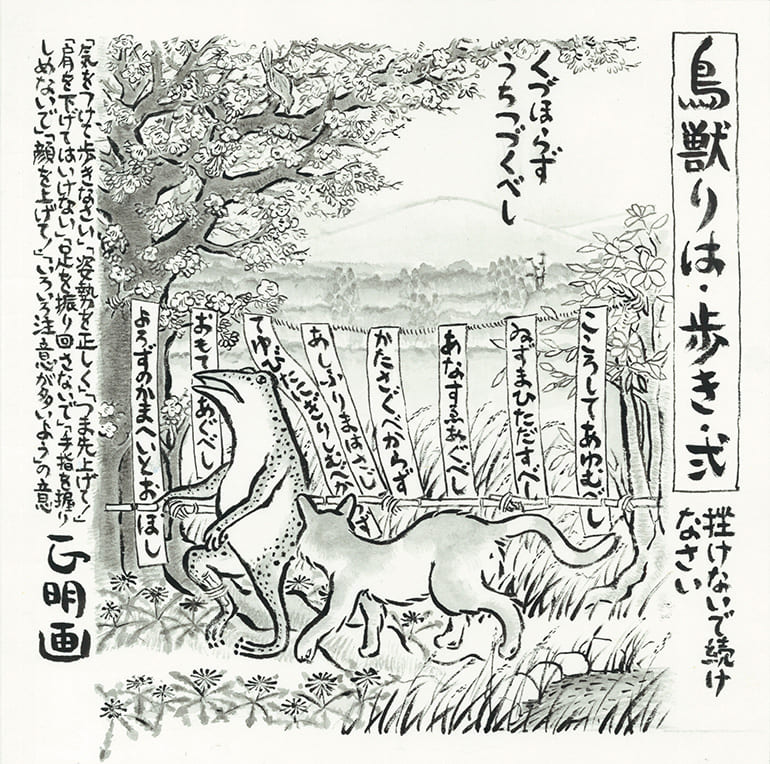 鳥獣りは・歩き・弐
挫けないで続け
なさい
くづほらず
うちつづくべし
こころしてあゆむべし
ゐずまひただすべし
あなすゑあぐべし
かたさぐべからず
あしふりまはさざ
てゆびにぎりしむべか
おもて あぐべし
よろずのかまへいとおほし
「気をつけて歩きなさい」「姿勢を正しく」「つま先上げて!」
「肩を下げてはいけない」「足を振り回さないで」「手指を握り
しめないで」「顔を上げて!」「いろいろ注意が多いよう」の意
正明画